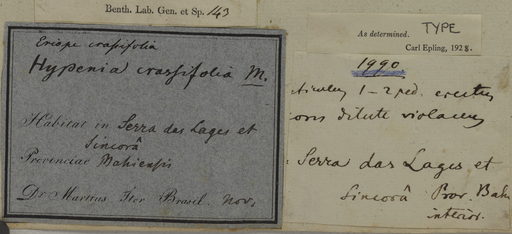 Benth. Lab. Gen. et Sp. 143
Eriope crassifolia
Hypenia crassifolia M.
Habitat in Serra das Lages et
Sincorâ
Provinciae Bahiensis
Dr Martius Iter Brasil. Nov.
TYPE
As determined.
Carl Epling, 1928.
1990
1-2 ped. erectus
dilute violaceus
Serra das Lages et
Sincorâ Prov. Bah
interior.